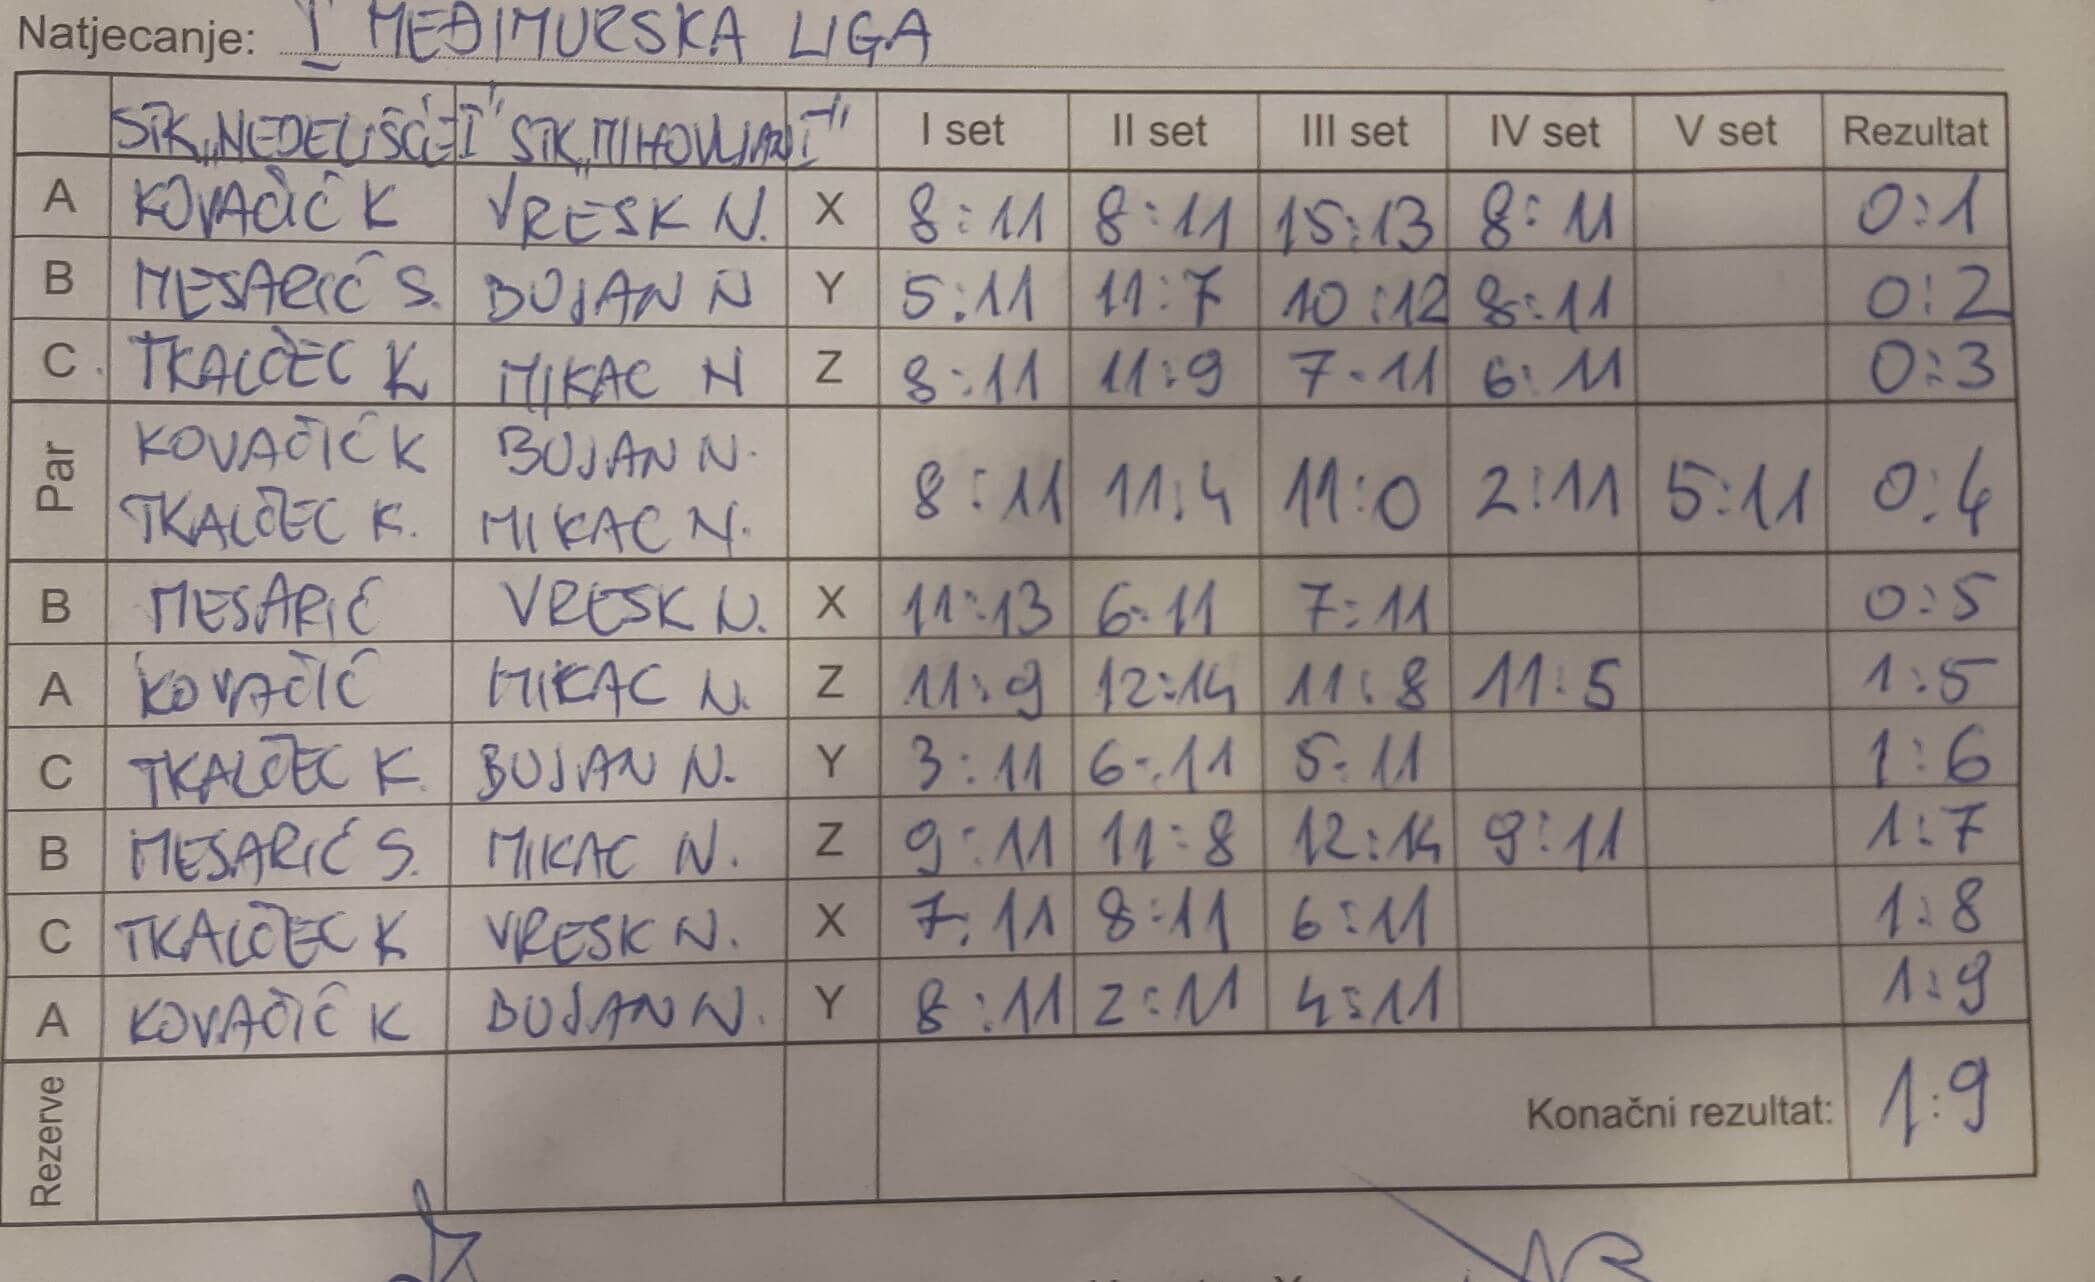 Natjecanje: I MEĐIMURSKA LIGA
STK „NEDELIŠĆE I" STK „MIHOVLJAN I" I set II set III set IV set V set Rezultat
A KOVAČIĆ K VRESK N. X 8:11 8:11 15:13 8:11 0:1
B MESARIĆ S. BUJAN N Y 5:11 11:7 10:12 8:11 0:2
C TKALČEC K MIKAC N Z 8:11 11:9 7-11 6:11 0:3
Par KOVAČIĆ K BUJAN N. 8:11 11:4 11:0 2:11 5:11 0:4
TKALČEC K. MIKAC N.
B MESARIĆ VRESK N. X 11:13 6:11 7:11 0:5
A KOVAČIĆ MIKAC N. Z 11:9 12:14 11:8 11:5 1:5
C TKALČEC K. BUJAN N. Y 3:11 6:11 5:11 1:6
B MESARIĆ S. MIKAC N. Z 9:11 11:8 12:14 9:11 1:7
C TKALČEC K VRESK N. X 7:11 8:11 6:11 1:8
A KOVAČIĆ K BUJAN N. Y 8:11 2:11 4:11 1:9
Rezerve Konačni rezultat: 1:9